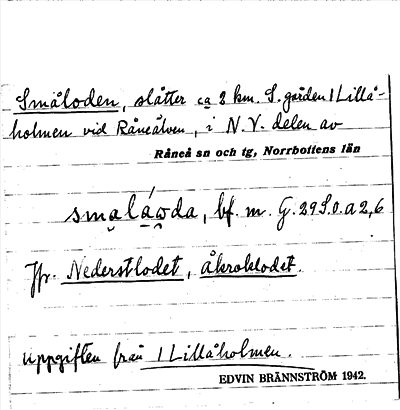 Småloden, slåtter ca 2 km. S. gården 1 Lillå-
holmen vid Råneälven, i N.V. delen av
Råneå sn och tg, Norrbottens län
smaláωda, bf. m. G. 29 S.O. a 2,6
Jfr. Nederstlodet, Åkroklodet.
Uppgiften från 1 Lillåholmen.
EDVIN BRÄNNSTRÖM 1942.